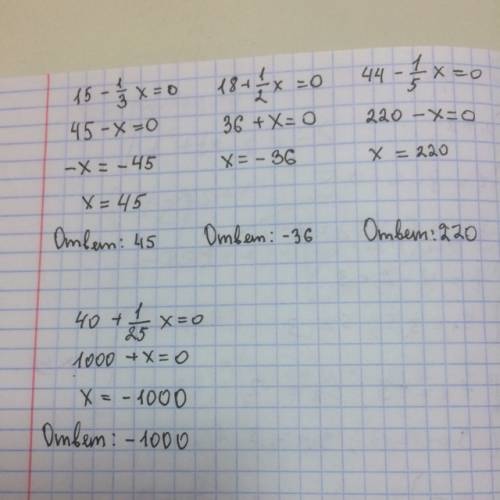 15 - 1/3 x = 0
45 - x = 0
-x = -45
x = 45
Ответ: 45
18 + 1/2 x = 0
36 + x = 0
x = -36
Ответ: -36
44 - 1/5 x = 0
220 - x = 0
x = 220
Ответ: 220
40 + 1/25 x = 0
1000 + x = 0
x = -1000
Ответ: -1000